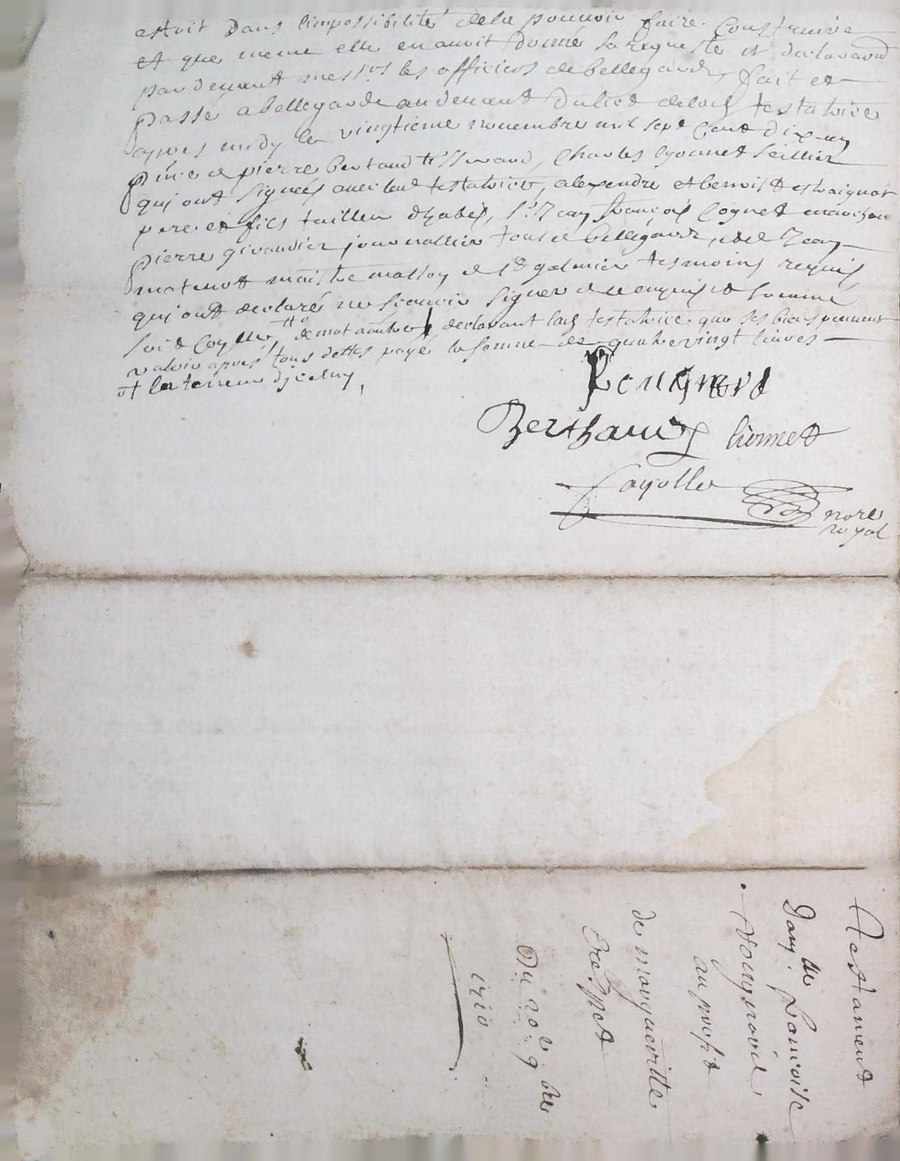 estoit dans l'impossibilité de la pouvoir faire construire
et que meme elle en auroit donné sa requeste et declaration
pardevant mess.rs les officiers de bellegarde, fait et
passé a bellegarde au devant du lict de lad. testatrice
apres midy le vingtieme novembre mil sept cent dix en
de pierre bertaud tisserand, Charles lyonnet seillier
qui ont signés avec lad. testatrice, alexendre et benoist
pere et fils tailleur d'habis, s.r Jean françois Cognet marechal
pierre givaudier journallier tous de bellegarde, et de Jean
maistre masson de s.t galmier tesmoins requis
qui ont declaré ne scavoir signer de ce enquis et sommé
declarant lad. testatrice que ses biens peuvent
valoir apres tous dettes payé la somme de quatrevingt livres
et la teneur d'jceluy,
Berthaud lionnet
fayolle no.re
royal
Testament
de
au profit
de
Du 20e 9bre
1710